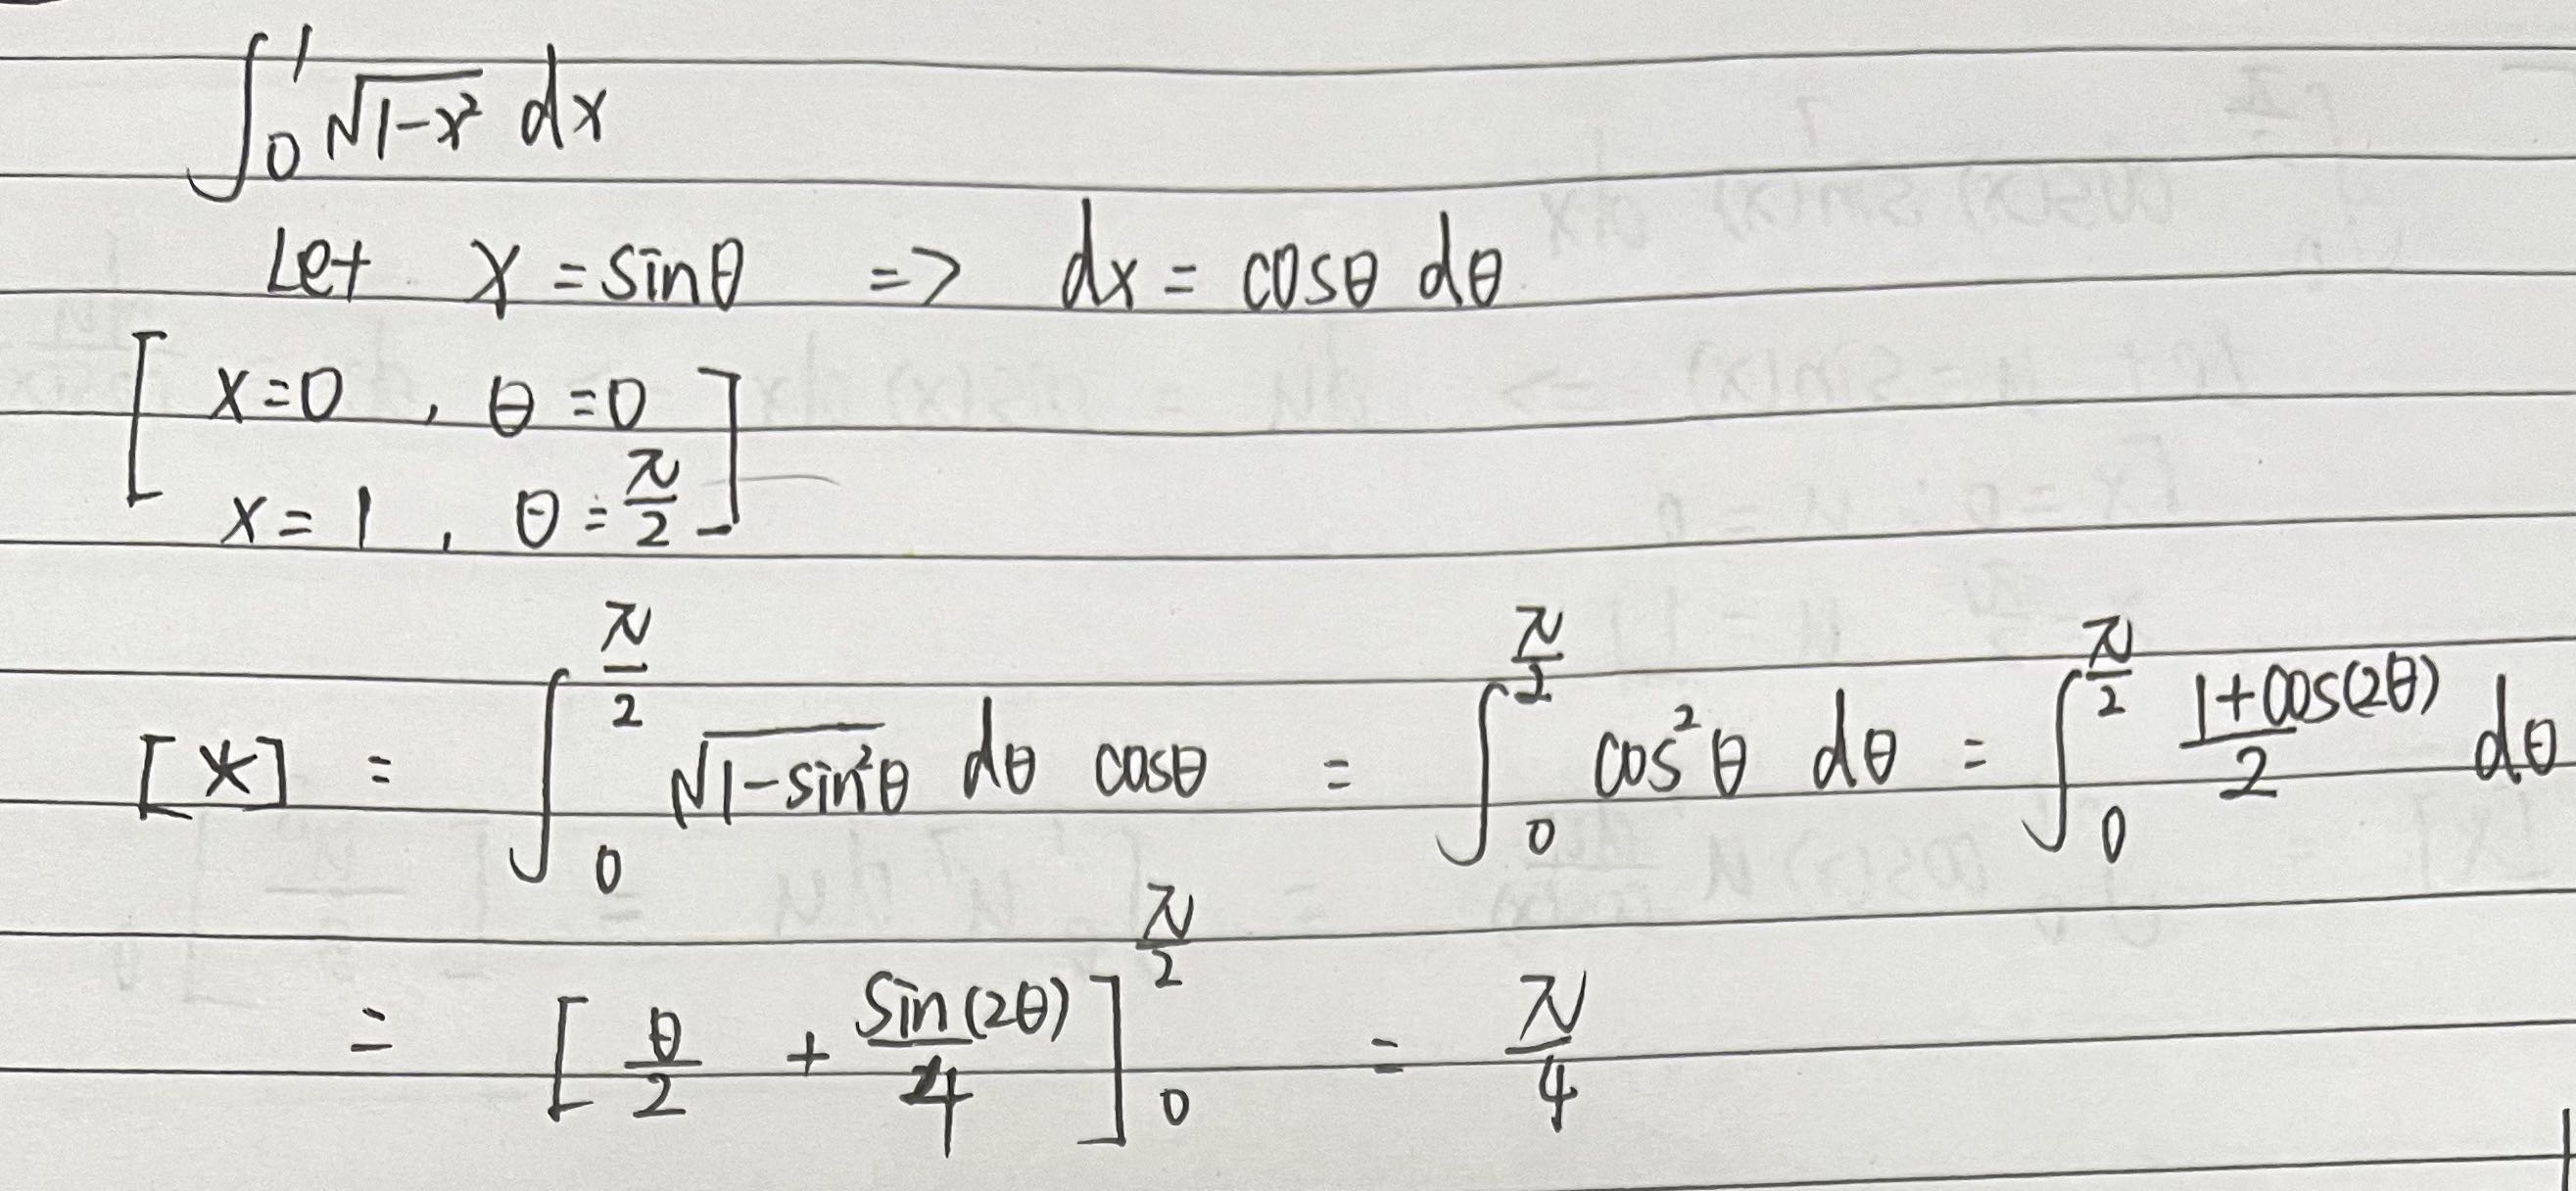 ∫₀¹ √(1-x²) dx
Let x = sinθ => dx = cosθ dθ
[ x=0 , θ=0
x=1 , θ=π/2 ]
[*] = ∫₀^(π/2) √(1-sin²θ) dθ cosθ = ∫₀^(π/2) cos²θ dθ = ∫₀^(π/2) (1+cos(2θ))/2 dθ
= [ θ/2 + sin(2θ)/4 ]₀^(π/2) = π/4